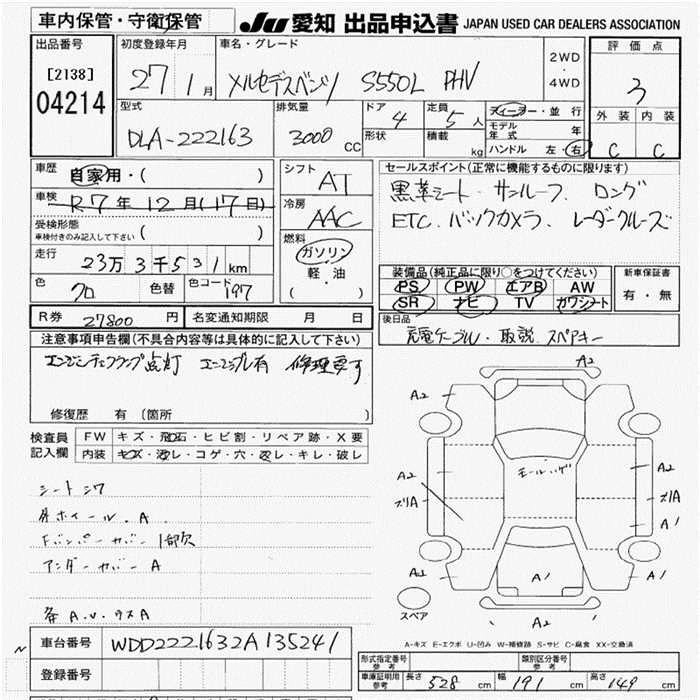 車内保管・守衛保管
JU 愛知 出品申込書 JAPAN USED CAR DEALERS ASSOCIATION
出品番号
[2138]
04214
初度登録年月
27 1月
車名・グレード
メルセデスベンツ S550L PHV
2WD
・
4WD
評価点
3
外装 内装
C C
型式
DLA-222163
排気量
3000 CC
ドア 4
形状
定員 5人
積載 kg
ディーラー・並行
モデル年式 年
ハンドル 左・右
車歴
自家用・( )
車検
R7年12月(17日)
受検形態
車検付きのみ記入して下さい ( )
走行
23万3千531km
色 クロ 色替 色コード 197
シフト
AT
冷房
AAC
燃料
ガソリン
軽・油
( )
セールスポイント(正常に機能するものに限ります)
黒革シート・サンルーフ、ロング
ETC、バックカメラ、レーダークルーズ
装備品(純正品に限り○をつけてください)
PS PW エアB AW
SR ナビ TV カワシート
新車保証書
有・無
R券 27800円 名変通知期限 月 日
後日品
充電ケーブル・取説 スペアキー
注意事項申告欄(不具合内容等は具体的に記入して下さい)
エンジンチェックランプ点灯 エンジンブレ有 修理要す
修復歴 有 [箇所 )
検査員記入欄
FW キズ・飛石・ヒビ割・リペア跡・X要
内装 キズ・汚レ・コゲ・穴・変レ・キレ・破レ
シートシワ
A2
A2
A2
A2
モールハゲ
A2
A2
ズリA
ズ1A
A1
A2
A1
A1
A2
スペア
Fバンパーカバー 1部欠
アンダーカバー A
各A.U.ウスA
A-キズ E-エクボ U-凹み W-補修跡 S-サビ C-腐食 XX-交換済
車台番号 WDD2221632A135241
登録番号
形式指定番号 参考
類別区分番号 参考
車庫証明用 参考 長さ 528cm 幅 191cm 高さ 149cm